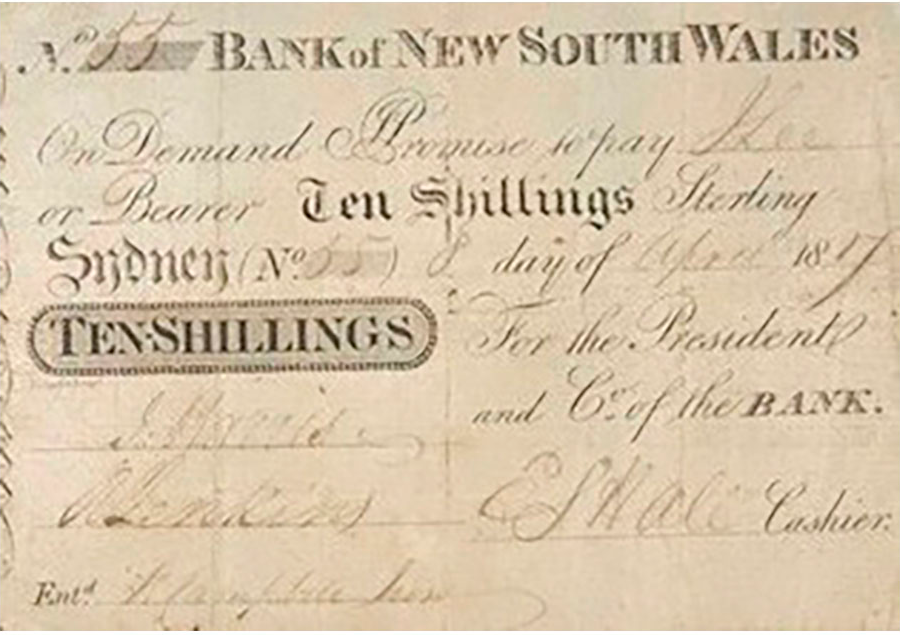 No. 55 BANK of NEW SOUTH WALES
On Demand I Promise to pay
or Bearer Ten Shillings Sterling
Sydney (No. 55) 8 day of April 1817
TEN·SHILLINGS
For the President
and Co. of the BANK.
J. Harris
R Jenkins
E S Hall Cashier.
Entd.